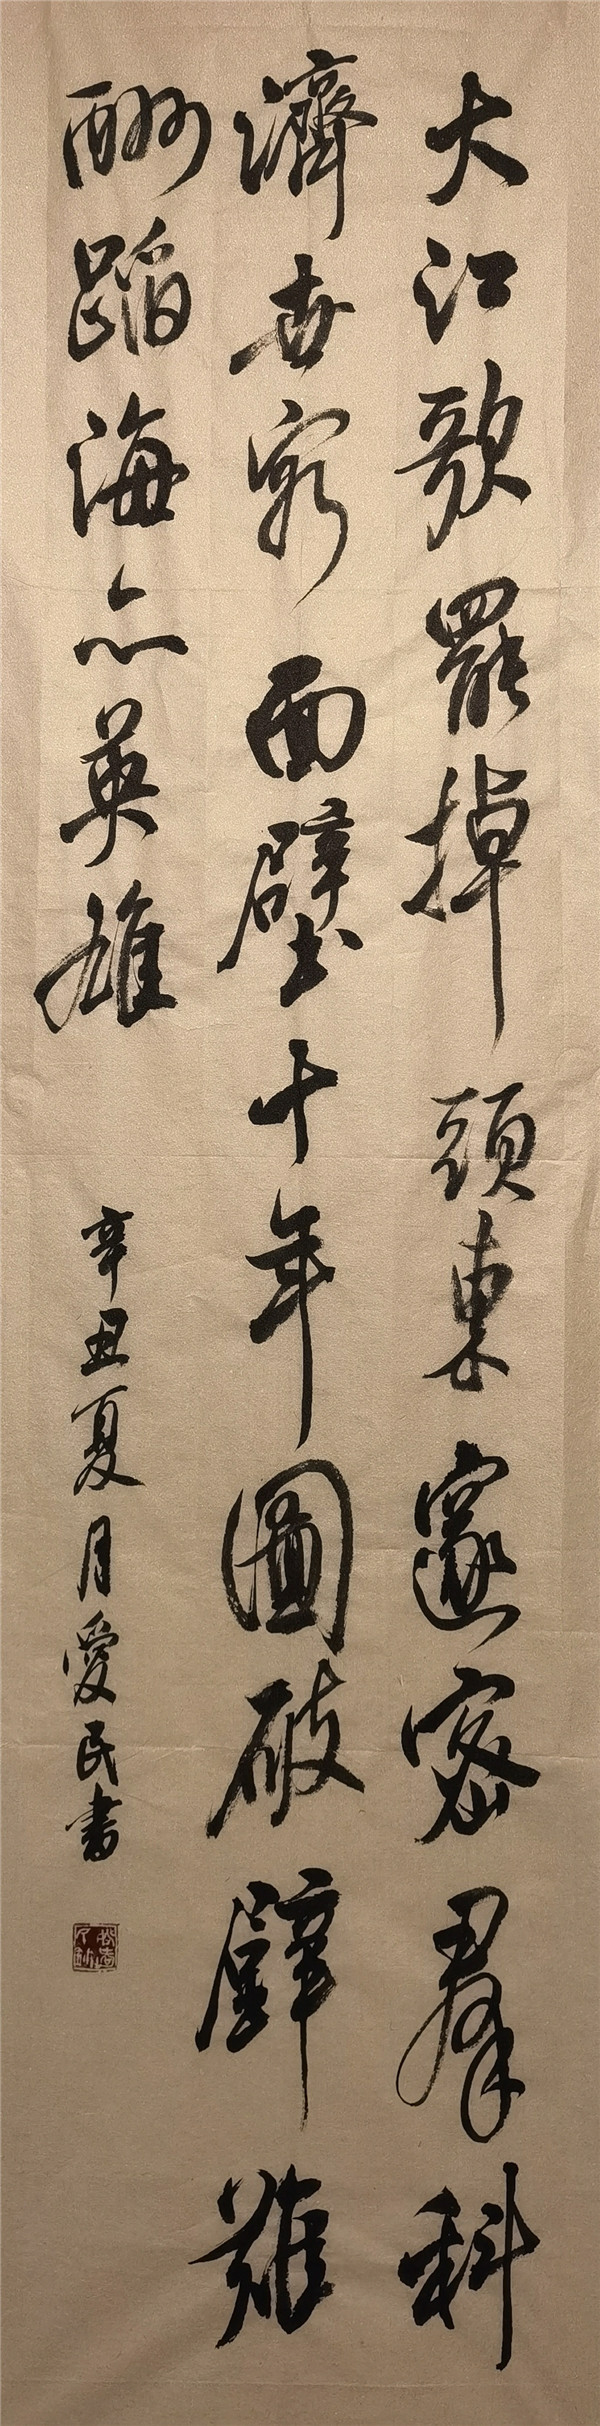 大江歌罷掉頭東邃密羣科
濟世窮面壁十年圖破壁難
酬蹈海亦英雄
辛丑夏月愛民書